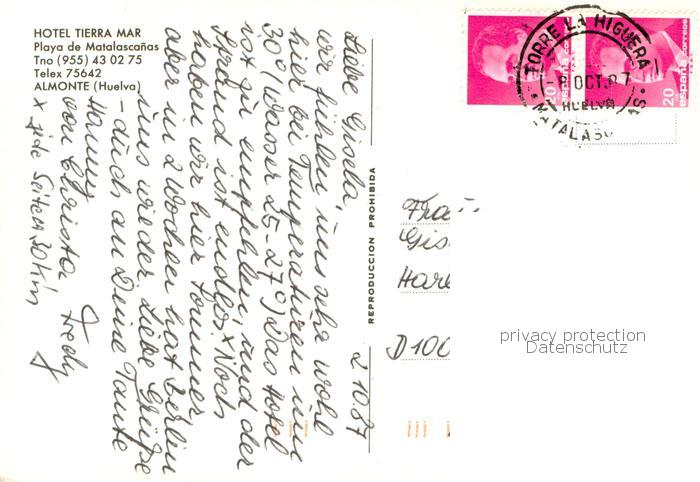 HOTEL TIERRA MAR
Playa de Matalascañas
Tno (955) 43 02 75
Telex 75642
ALMONTE (Huelva)
2.10.87
Liebe Gisela,
wir fühlen uns sehr wohl
hier bei Temperaturen um
30° (Wasser 25-27°) Das Hotel
ist zu empfehlen, und der
Strand ist endlos x Noch
haben wir hier Sommer
aber in 2 Wochen hat Berlin
uns wieder. Liebe Grüße
- auch an Deine Tante
Hanny
von Christa Fredy
x jede Seite 30 km
REPRODUCCION PROHIBIDA
20 españa correos
20 españa correos
TORRE LA HIGUERA
-8 OCT 87
HUELVA
Frau
Gis
Hare
D 100
privacy protection
Datenschutz